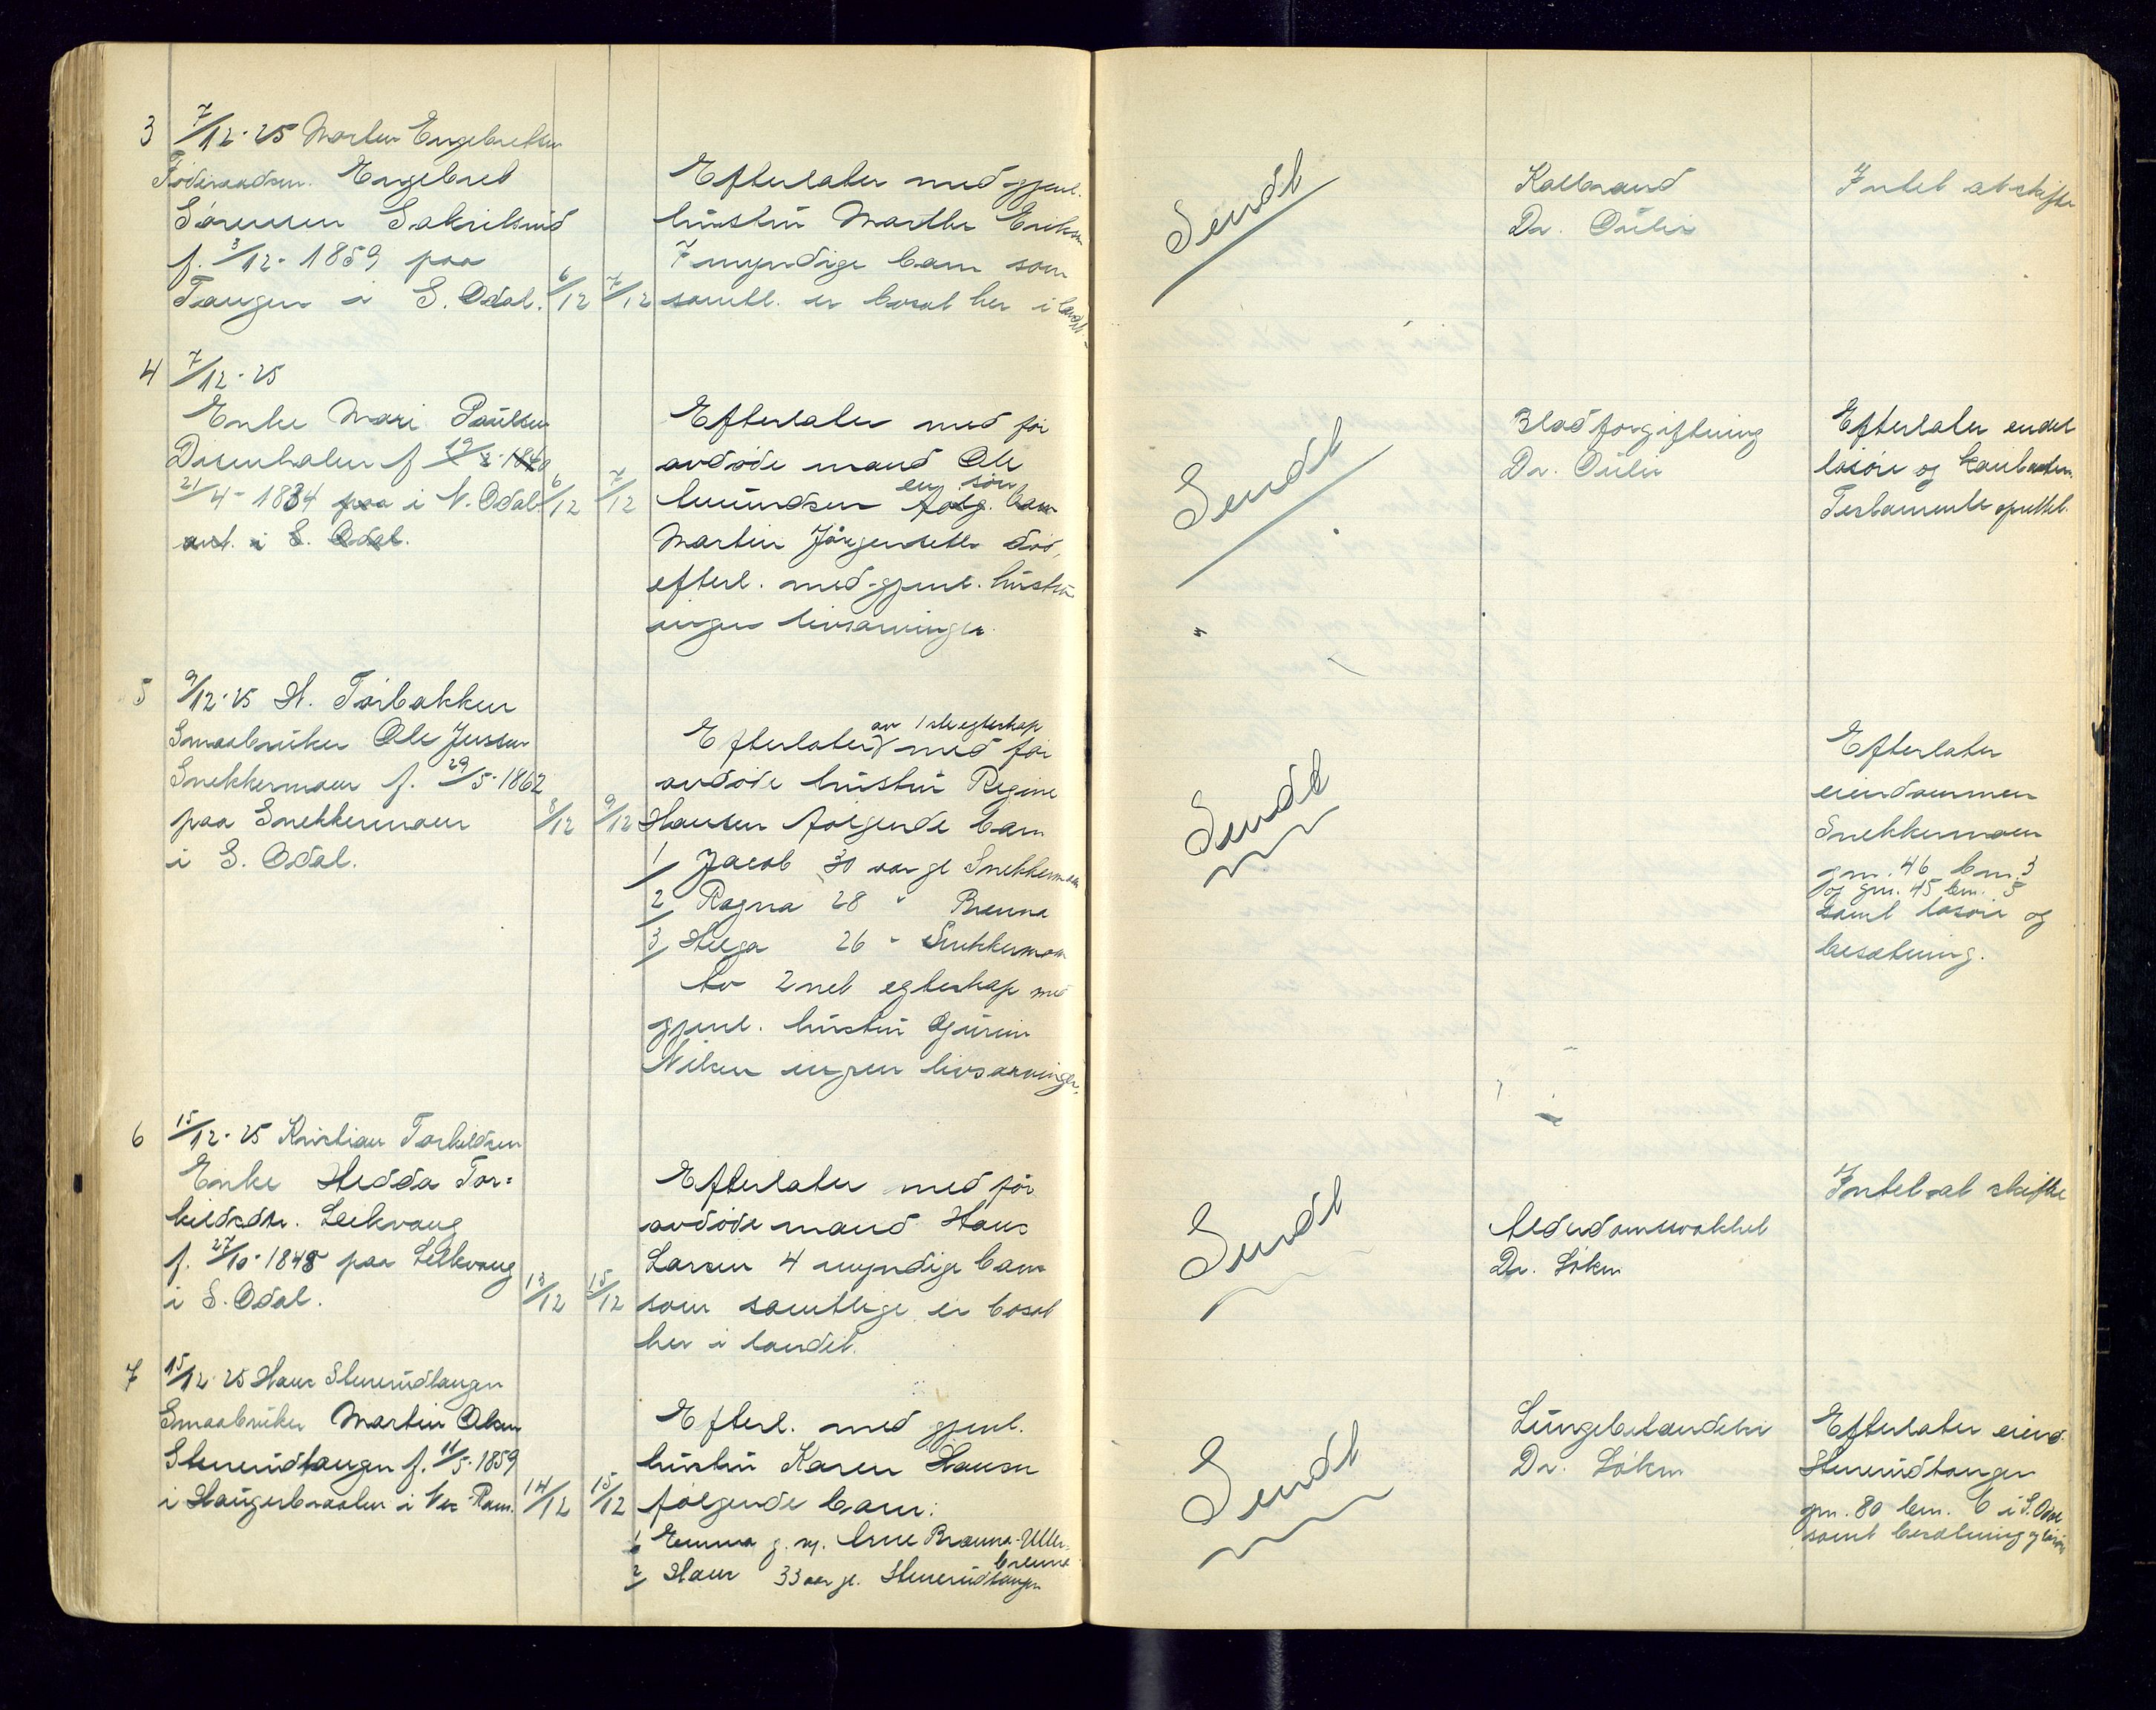 3 7/12-25 Morten Engebretsen
Føderaadsm. Engebret
Sørensen
f. 3/12-1859 paa
Tangen i S. Odal.
6/12 7/12
Efterlater med gjenl.
hustru Marthe Eriksen
7 myndige barn som
samtl. er bosat her i landet.
Sendt
Koldbrand
Dr. Øulie
Intet at skifte
4 7/12-25
Enke Mari Paulsen
Disenhalen f.
21/4-1834 paa i N. Odal
ant. i S. Odal.
6/12 7/12
Efterlater med før
avdøde mand Ole
Amundsen følg. barn
en søn
Martin Jørgensen død,
efterl. med gjenl. hustru
ingen livsarvinger.
Sendt
Blodforgiftning
Dr. Øulie
Efterlater endel
løsøre og
Testamente oprettet.
5 9/12-25 H. Torbakken
Smaabruker Ole Jensen
Snekkermoen f. 29/5-1862
paa Snekkermoen
i S. Odal.
8/12 9/12
av 1ste egteskap
Efterlater med før
avdøde hustru Regine
Hansen følgende barn
1/ Jacob 30 aar gl Snekkermoen
2/ Ragna 28 " Brenna
3/ Helga 26 " Snekkermoen
Av 2net egteskap med
gjenl. hustru Gurine
Nilsen ingen livsarvinger.
Sendt
Efterlater
eiendommen
Snekkermoen
gn. 46 bn. 3
og gn. 45 bn. 5
samt løsøre og
besætning.
6 15/12-25 Kristian Torkildsen
Enke Hedda Tor=
kildsdtr. Leikvang
f. 27/10-1848 paa Leikvang
i S. Odal.
13/12 15/12
Efterlater med før
avdøde mand Hans
Larsen 4 myndige barn
som samtlige er bosat
her i landet.
Sendt
Alderdomssvakhet
Dr. Løken
Intet at skifte
7 15/12-25 Hans Stenerudtangen
Smaabruker Martin Olsen
Stenerudtangen f. 11/5-1859
i Haugerbraaten i
14/12 15/12
Efterl. med gjenl.
hustru Karen Hansen
følgende barn:
1/ Emma g. m. Arne Brenna-Uller-
brenna
2/ Hans 33 aar gl. Stenerudtangen
Sendt
Lungebetændelse
Dr. Løken
Efterlater eiend.
Stenerudtangen
gn. 80 bn. 6 i S. Odal
samt besætning og løsøre